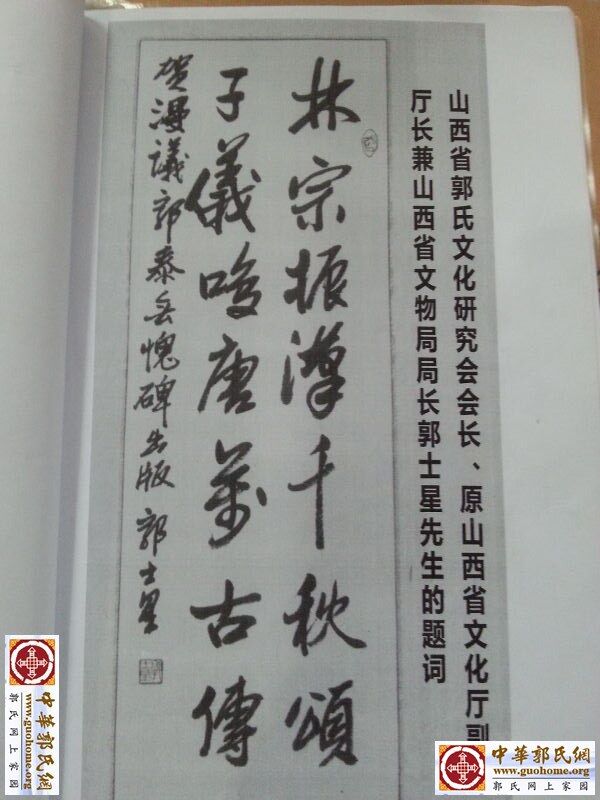 山西省郭氏文化研究会会长、原山西省文化厅副
厅长兼山西省文物局局长郭士星先生的题词
林宗振漢千秋頌
子儀唆唐萬古傳
贺漫議郭泰無愧碑出版 郭士星
中華郭氏網
www.guohome.org
郭氏网上家园
中華郭氏網
www.guohome.org
郭氏网上家园